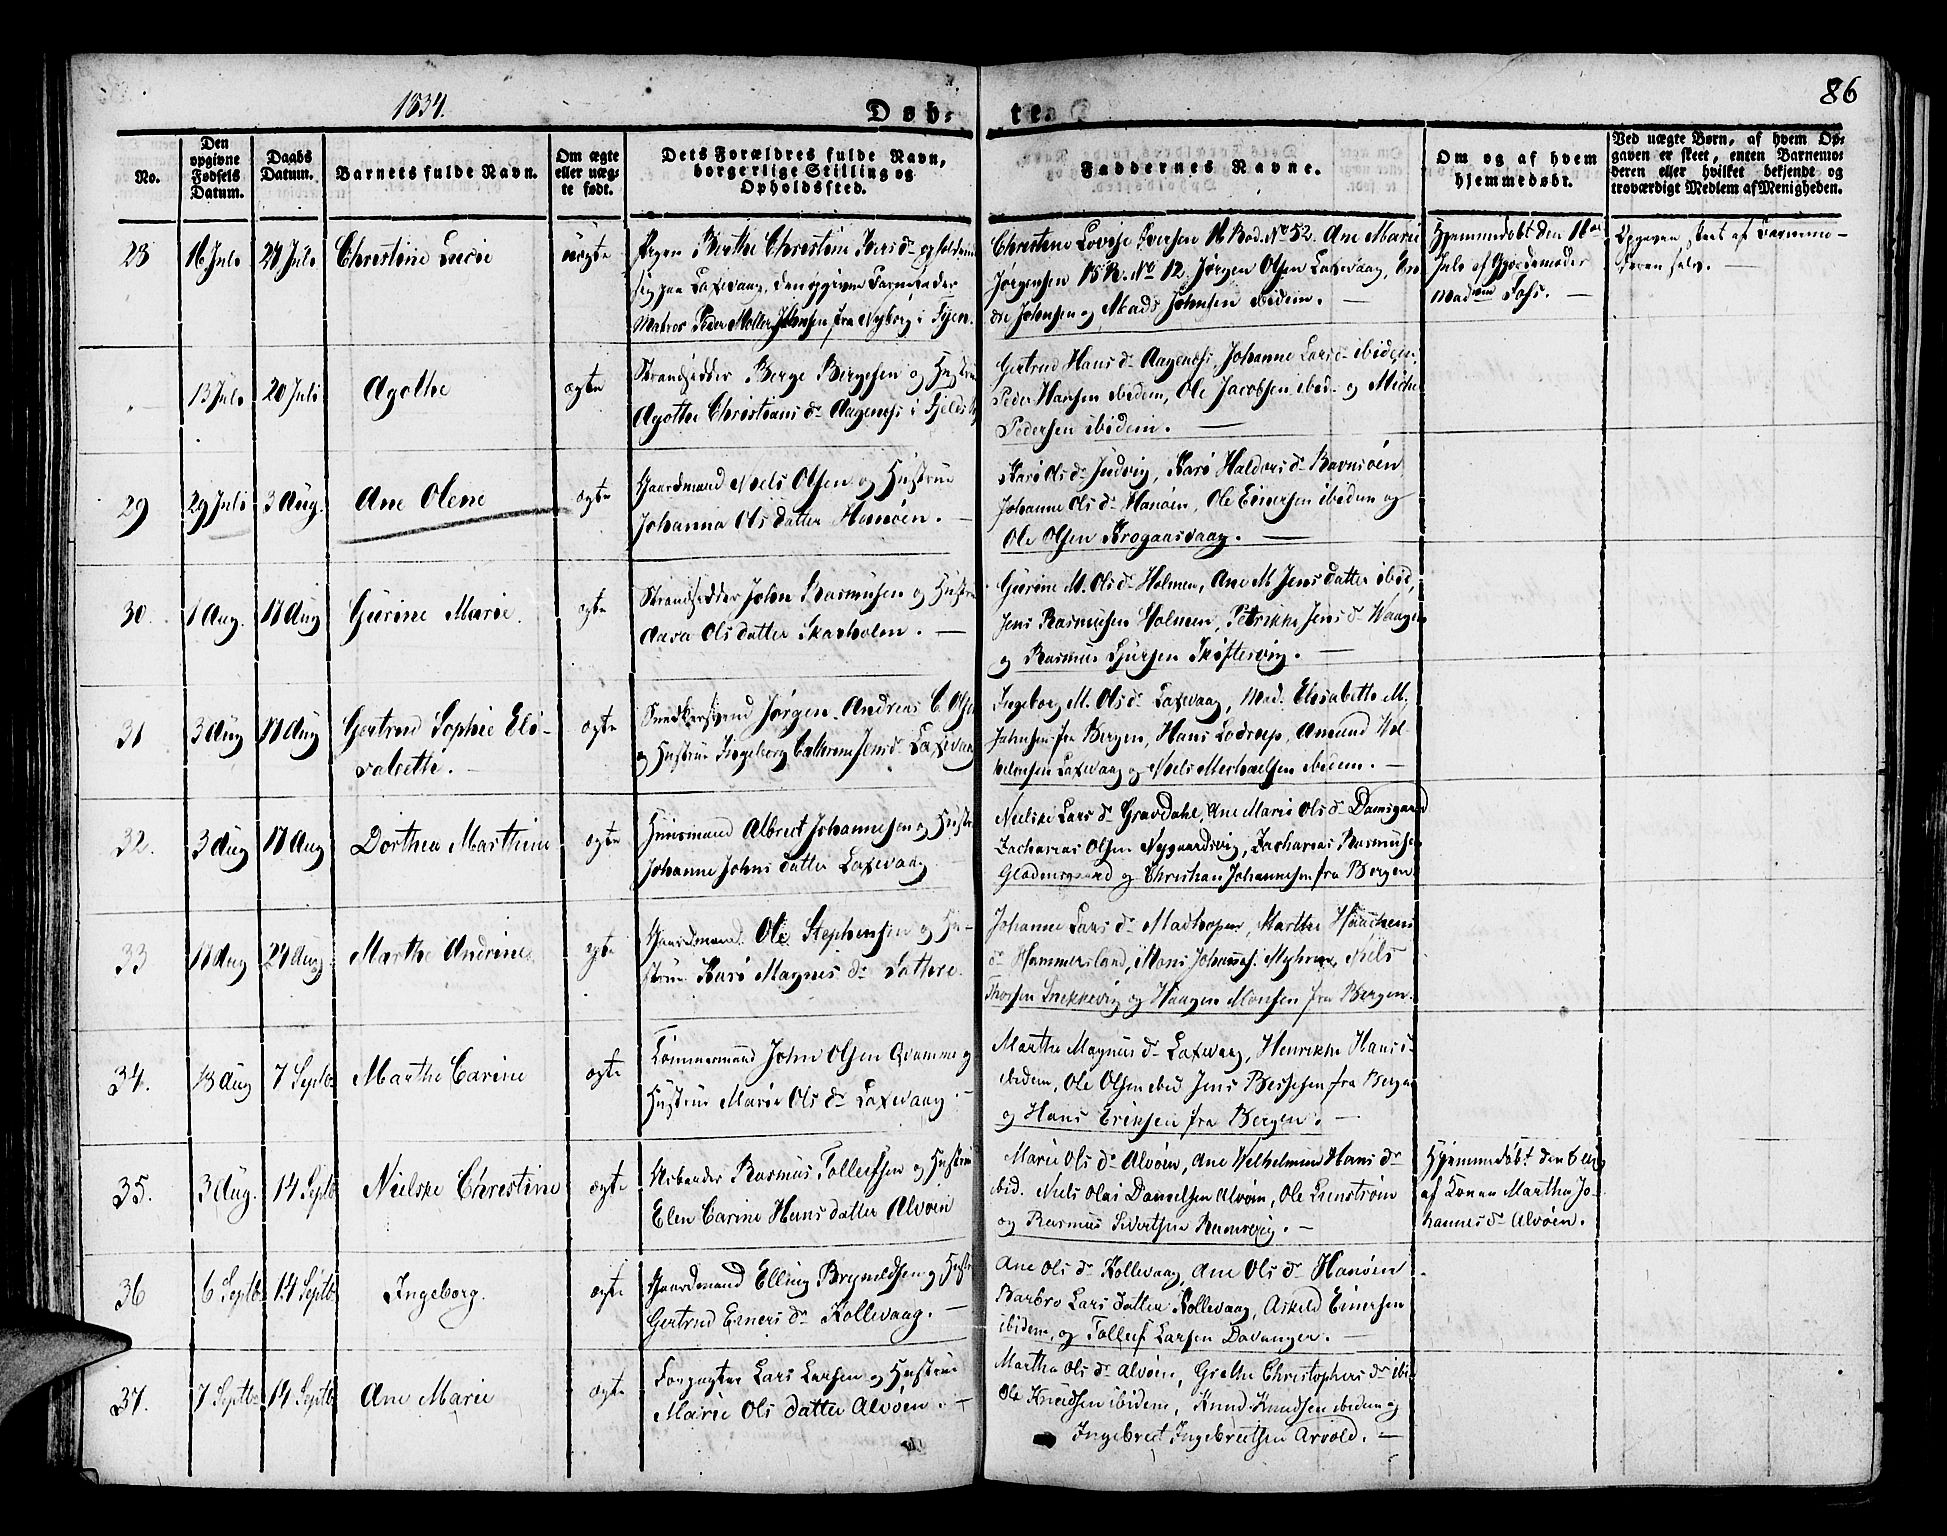 1834.
Døb-
te.
86
No.
Den opgivne Fødsels Datum.
Daabs Datum.
Barnets fulde Navn.
Om ægte eller uæg-te født.
Dets Forældres fulde Navn, borgerlige Stilling og Opholdssted.
Faddernes Navne.
Om og af hvem hjemmedøbt.
Ved uægte Børn, af hvem Op-gaven er skeet, enten Barnemo-deren eller hvilket bekjendt og troværdigt Medlem af Menigheden.
28 16 Juli 20 Juli Christine Lucie uægte
Pigen Berthe Christine Iversd. og
sig paa Laxevaag, den opgivne Barnefader
Matros Peder Møller Johnsen fra Nyborg i Fyen.
Christine Lovise Iversen 16 Rod. No 52. Ane Marie
Jørgensen 15 R. No 12. Jørgen Olsen Laxevaag,
Johnsen og Mads Johnsen ibidem. —
Hjemmedøbt den 18de
Juli af Gjordemoder
Madme Foss. —
Opgaven skeet af Barnemo-
deren selv. —
— 13 Juli 20 Juli Agathe ægte
Strandsidder Berge Bergesen og Hustru
Agathe Christians d. Aagenæs i Fjeldsk.
Gertrud Hans d. Aagenæs, Johanne Larsd. ibidem,
Peder Hansen ibidem, Ole Jacobsen ibid. og Michel
Pedersen ibidem. —
29 29 Juli 3 Aug. Ane Olene ægte
Gaardmand Niels Olsen og Hustrue
Johanna Ols datter Hanøen. —
Kari Ols d. Juvig, Kari Haldors d. Ravnøen
Johanne Ols d. Hanøen, Ole Einersen ibidem og
Ole Olsen Krogaasvaag. —
30. 1 Aug. 17 Aug Gurine Marie. ægte
Strandsidder John Rasmusen og Hustrue
Aasa Ols datter Skarholm. —
Gurine M. Ols d. Holmen, Ane M. Jens datter ibid,
Jens Rasmusen Holmen, Petrikke Jens d. Waagen
og Rasmus Sjursen Skiftesvig. —
31 3 Aug 17 Aug Gertrud Sophie Eli-
sabethe. — ægte
Snedkersvend Jørgen Andreas C. Olsen
og Hustrue Ingeborg Cathrine Jensd. Laxevaag
Ingeborg M. Ols d. Laxevaag, Mad. Elisabethe M.
Johnsen fra Bergen, Hans Lodrup, Amund Hal-
Laxevaag og Niels Michaelsen ibidem. —
32. 3 Aug 17 Aug Dorthea Marthine ægte
Huusmand Albrect Johannesen og Hustrue
Johanne Johns datter Laxevaag
Nielske Lars d. Gravdahl, Ane Marie Ols d. Damsgaard
Zacharias Olsen Nygaardsvig, Zacharias Rasmusen
Gladensgaard og Christian Johannesen fra Bergen
33 11 Aug 24 Aug Marthe Andrine ægte
Gaardmand Ole Stephensen og Hu-
strue Kari Magnes d. Sattere.
Johanne Lars d. Madtropen, Marthe Haachens
d. Hammersland, Mons Johannes. Myhren, Niels
Thorsen Snekkevig og Haagen Monsen fra Bergen.
34. 13 Aug 7 Septb. Marthe Carine ægte
Tømmermand John Olsen Qvamme og
Hustrue Marie Ols d. Laxevaag. —
Marthe Magnus d. Laxevaag, Henrikke Hans d.
ibidem, Ole Olsen ibid. Jens Bessesen fra Bergen
og Hans Eriksen fra Bergen. —
35. 3 Aug. 14 Septb Nielske Christine ægte
Arbeider Rasmus Tollefsen og Hustrue
Elen Carine Hans datter Alvøen
Marie Ols d. Alvøen, Ane Wilhelmine Hans d.
ibid. Niels Olai Danielsen Alvøen, Ole Lunstrøm
og Rasmus Sivertsen Ramsvig. —
Hjemmedøbt den 6 Aug
af Konen Martha Jo-
hannes d. Alvøen. —
36 6 Septb 14 Septb. Ingeborg. ægte
Gaardmand Elling Brynildsen og Hustr
Gertrud Einers d. Kollevaag. —
Ane Ols d. Kollevaag, Ane Ols d. Hanøen
Barbro Lars datter Kollevaag, Askeld Einersen
ibidem, og Tollef Larsen Davanger. —
37. 7 Septb. 14 Septb. Ane Marie ægte
Forpagter Lars Larsen og Hustrue
Marie Ols datter Alvøen. —
Martha Ols d. Alvøen, Grethe Christophers d. ibi
Ole Knudsen ibidem, Knud Knudsen ibidem og
Ingebrect Ingebrectsen Arvold. —